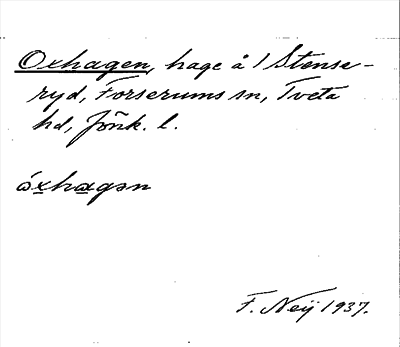 Oxhagen, hage å 1 Stense-
ryd, Forserums sn, Tveta
hd, Jönk. l.
óxhagən
F. Neij 1937.